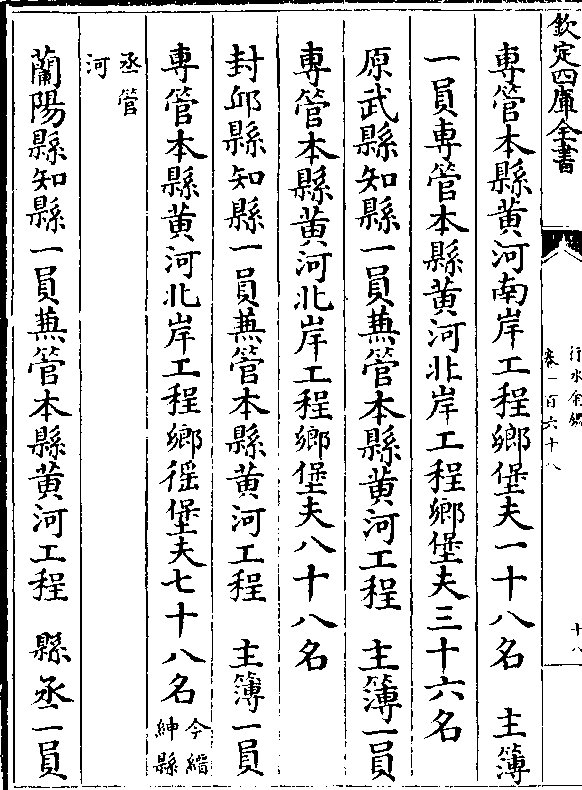 欽定四庫全書
行水金鑑
卷一百六十八
十八
專管本縣黄河南岸工程鄉堡夫一十八名　主簿
一員專管本縣黄河北岸工程鄉堡夫三十六名
原武縣知縣一員蕪管本縣黄河工程　主簿一員
專管本縣黄河北岸工程鄉堡夫八十八名
封邱縣知縣一員蕪管本縣黄河工程　主簿一員
專管本縣黄河北岸工程鄉徭堡夫七十八名今縉
紳縣
丞管
河
蘭陽縣知縣一員蕪管本縣黄河工程　縣丞一員